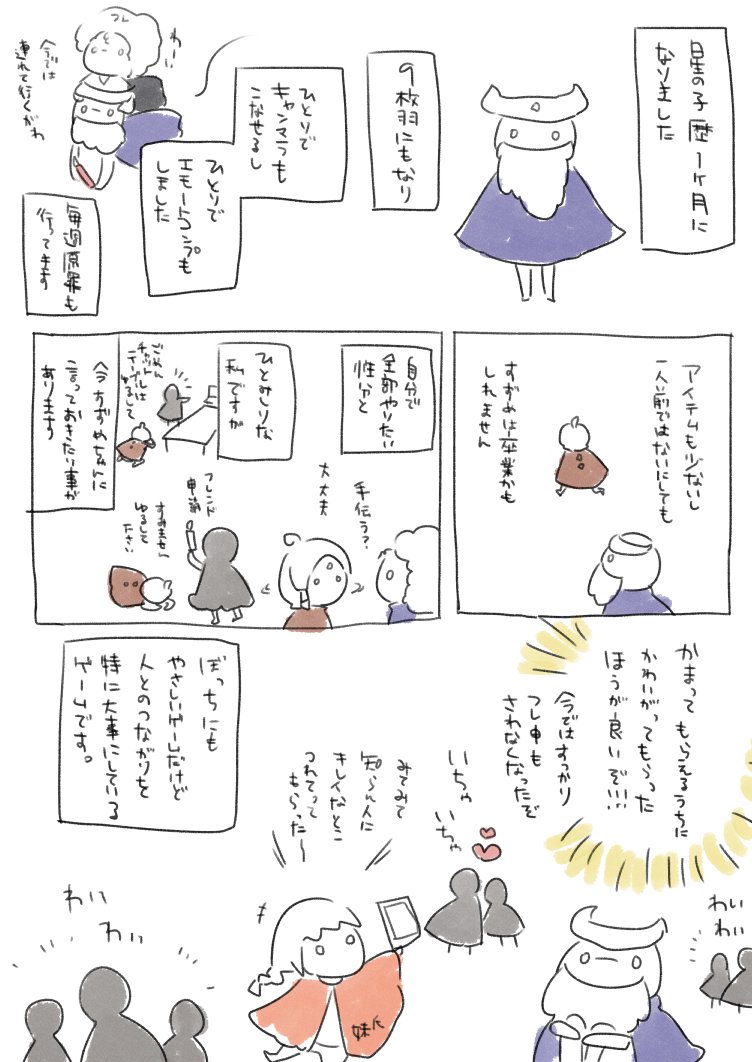 星の子 歴1ヶ月に
なりました
9枚羽にもなり
ひとりで
キャンマラも
こなせるし
ひとりで
エモートコンプも
しました
フレ
わーい
今では
連れて行くがわ
毎週原罪も
行ってます
アイテムも少ないし
一人前ではないにしても
すずめは卒業かも
しれません
自分で
全部やりたい
性分と
ひとみしりな
私ですが
ごめん
チャット
テーブルは
ゆるして
今すずめちゃんに
言っておきたい事が
あります
手伝う?
大丈夫
フレンド
申請
すみません
ゆるして
下さい
かまって もらえるうちに
かわいがってもらった
ほうが良いぞ!!!
今ではすっかり
フレ申も
されなくなったぞ
ぼっちにも
やさしいゲームだけど
人とのつながりを
特に大事にしている
ゲームです。
いちゃ
いちゃ
みてみて
知らん人に
キレイなとこ
つれてって
もらった〜
わい
わい
妹氏
わい
わい